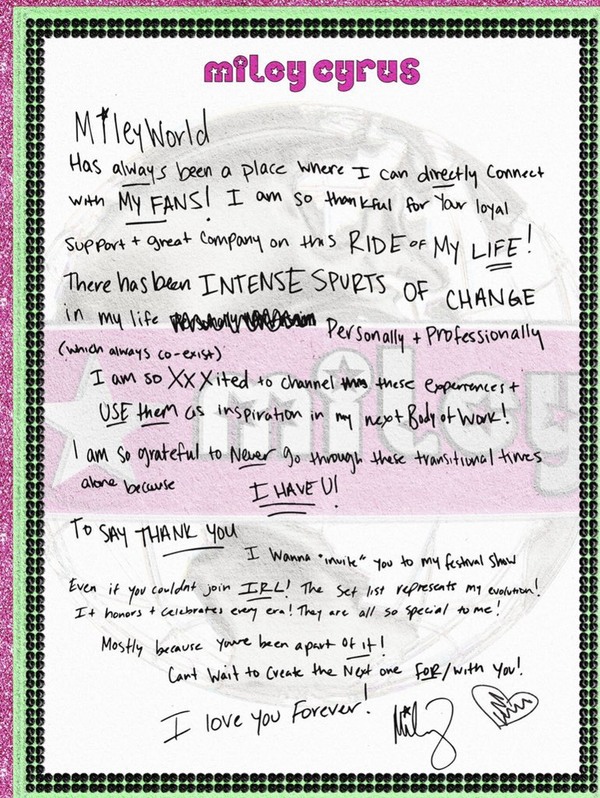 miley cyrus
MileyWorld
Has always been a place where I can directly connect
with MY FANS! I am so thankful for your loyal
support + great company on this RIDE OF MY LIFE!
There has been INTENSE SPURTS OF CHANGE
in my life Personally + Professionally
(which always co-exist)
I am so XxXited to channel these experiences +
USE them as inspiration in my next Body of Work!
I am so grateful to Never go through these transitional times
alone because I HAVE U!
To SAY THANK YOU
I Wanna "invite" you to my festival show
Even if you couldnt join IRL! The set list represents my evolution!
It honors + celebrates every era! They are all so special to me!
Mostly because youve been apart of it!
Cant Wait to Create the Next one FOR/with You!
I love you Forever!
Miley
miley